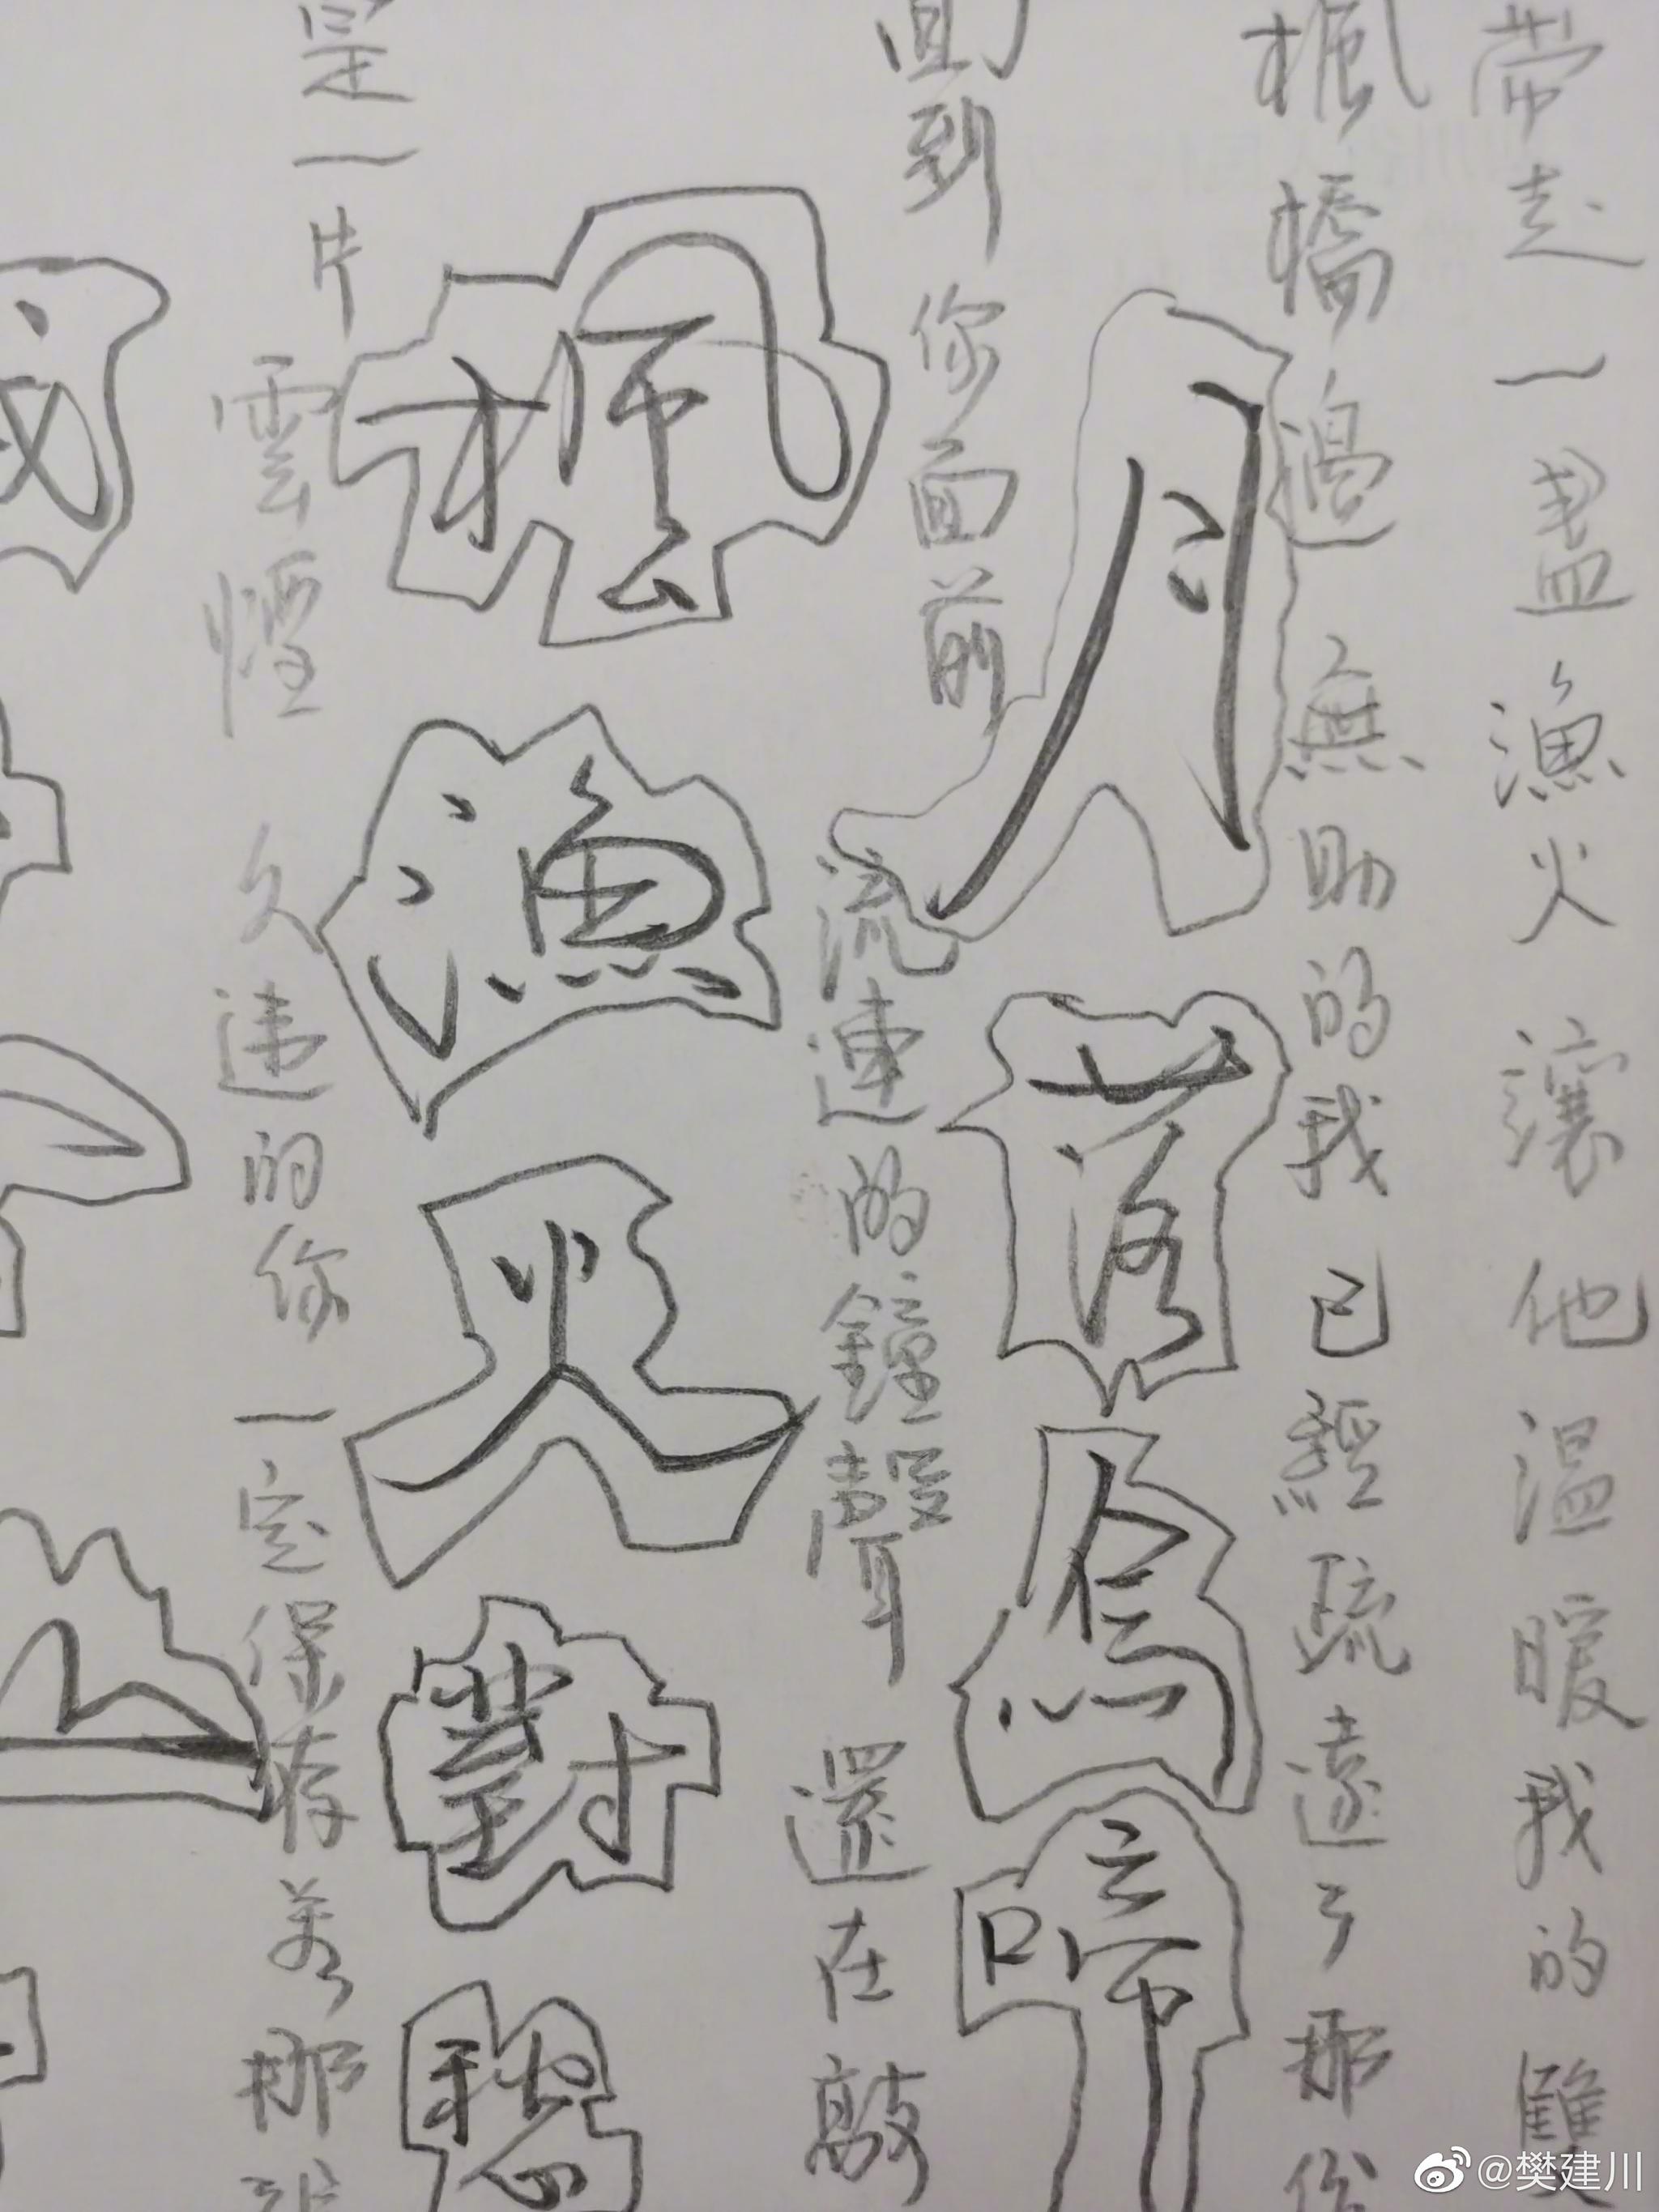 帶走一盞漁火 讓他溫暖我的雙
楓橋邊 無助的我 已經疏遠了那份
月落烏啼
回到你面前
流連的鐘聲 還在敲
楓漁火對愁
是一片雲煙 久违的你 一定保存着那
@樊建川